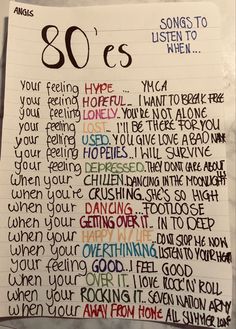 ANGLS
SONGS TO
LISTEN TO
WHEN...
80'es
your feeling HYPE ... YMCA
your feeling HOPEFUL... I WANT TO BREAK FREE
your feeling LONELY.. YOU'RE NOT ALONE
your feeling LOST... I'll BE THERE FOR YOU
your felling USED. YOU GIVE LOVE A BAD NAME
your feeling HOPElES.. I WILL SURVIVE
your feeling DEPRESSED. THEY DON'T CARE ABOUT
When your CHILLEN. DANCING IN THE MOONLIGHT
when you're CRUSHING. SHE'S SO HIGH
when your DANCING... FOOTLOOSE
when your GETTING OVER IT. IN TO DEEP
when your HAPPY IN LIFE. DON'T STOP ME NOW
when your OVERTHINKING. LISTEN TO YOUR HEART
your feeling GOOD.. I FEEL GOOD
when your OVER IT. I LOVE ROCK'N'ROLL
when your ROCKING IT. SEVEN NATION ARMY
when your AWAY FROM HOME ALL SUMMER LONG